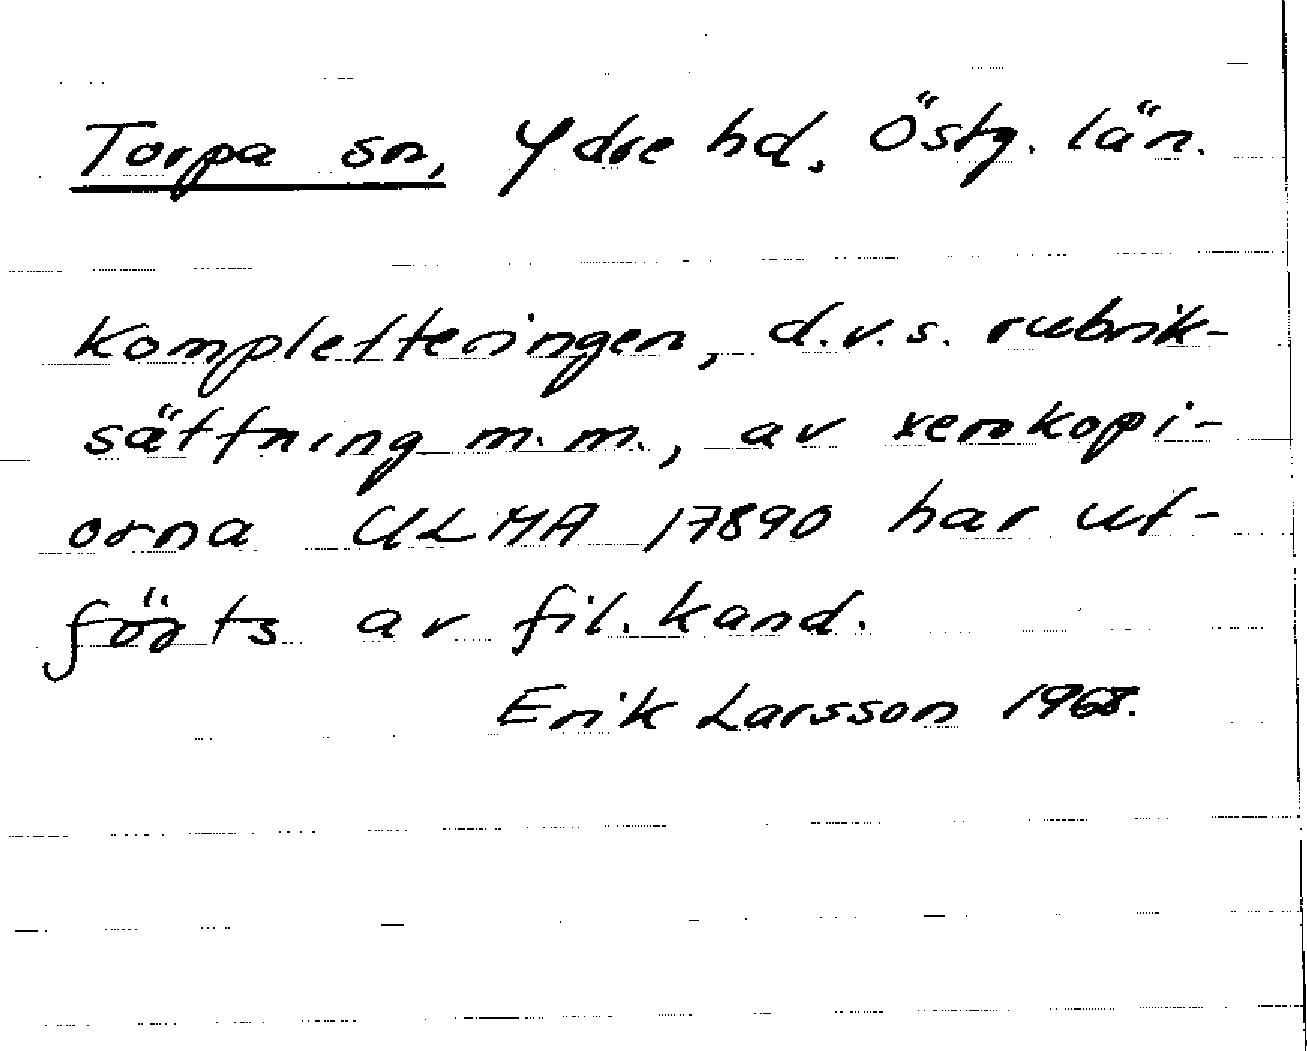 Torpa sn, Ydre hd. Östg. län.
Kompletteringen, d.v.s. rubrik-
sättning m.m., av xerokopi-
orna ULMA 17890 har ut-
förts av fil. kand.
Erik Larsson 1968.